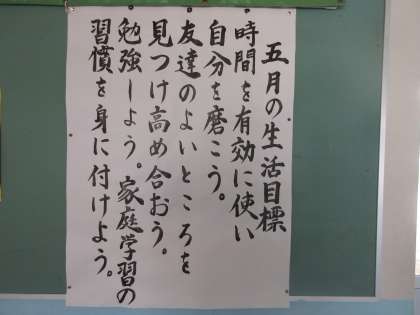 五月の生活目標
時間を有効に使い
自分を磨こう。
友達のよいところを
見つけ高め合おう。
勉強しよう。家庭学習の
習慣を身に付けよう。